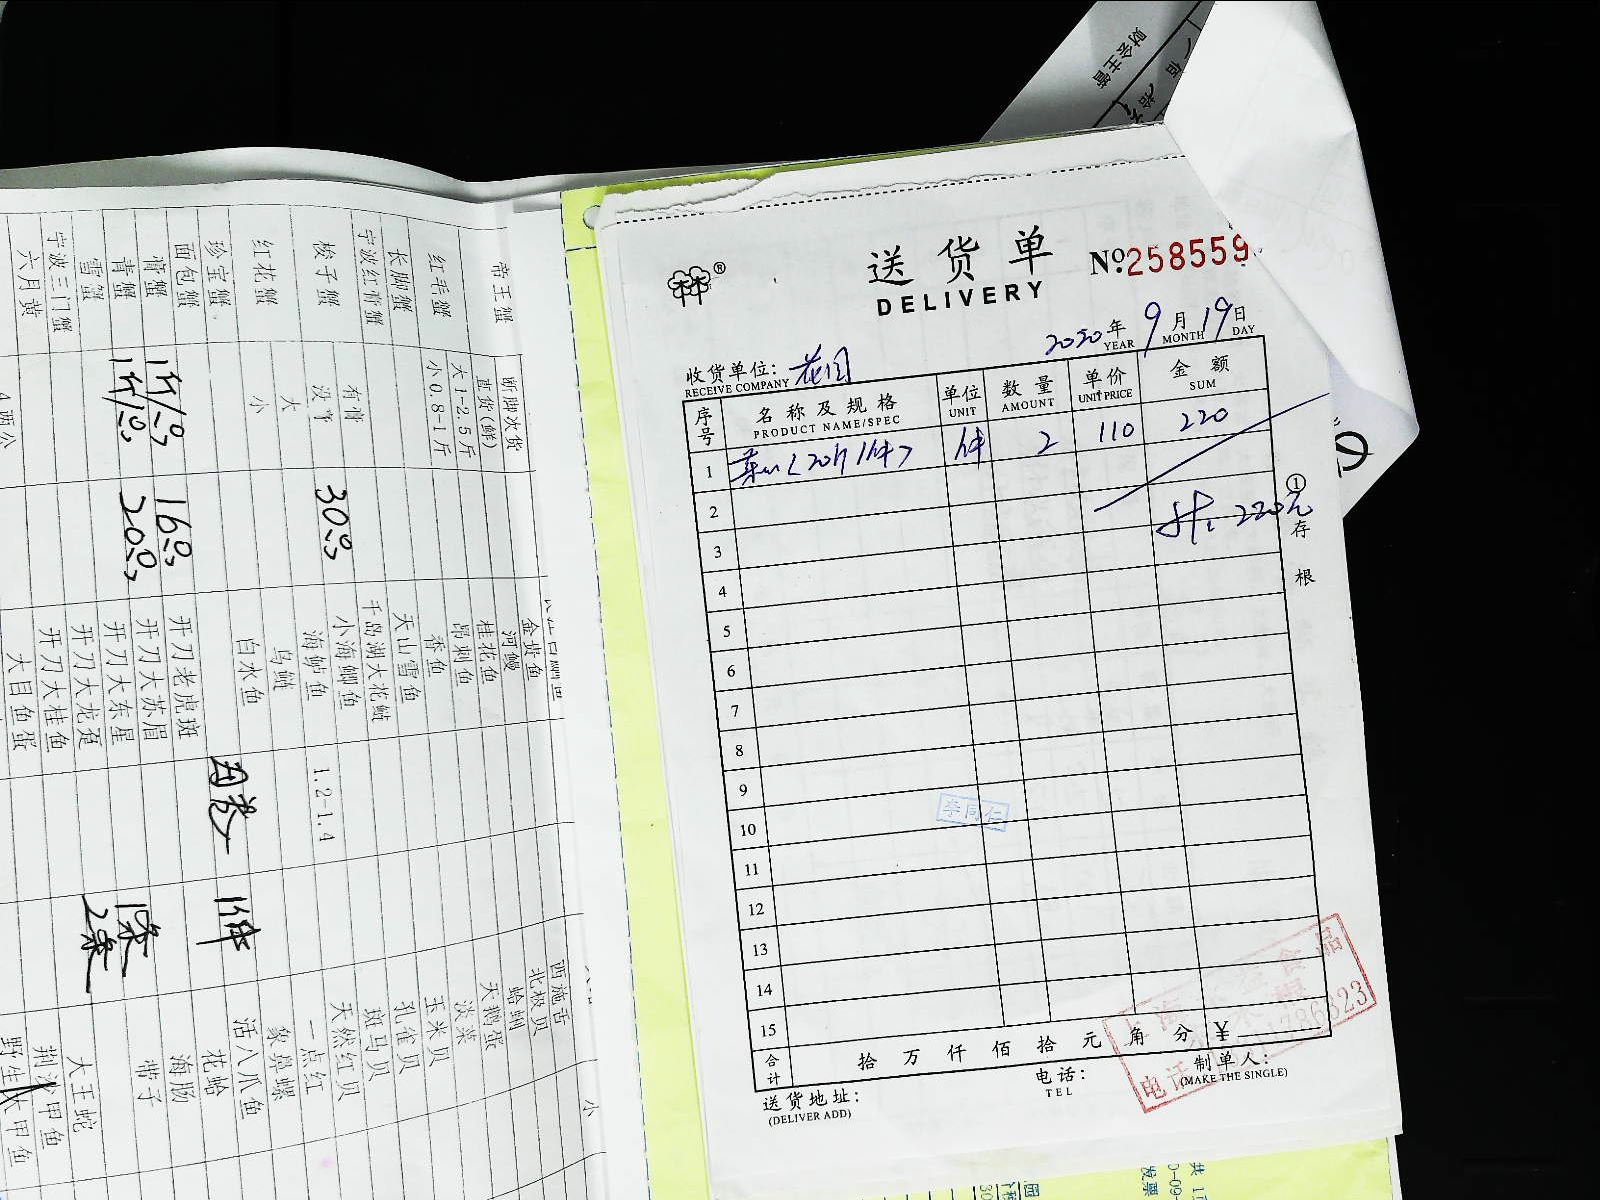 财会主管
佰
拾
送货单
DELIVERY
®
№258559
2020年 9月 19日
YEAR MONTH DAY
收货单位：花园
RECEIVE COMPANY
序号 名称及规格 单位 数量 单价 金额
PRODUCT NAME/SPEC UNIT AMOUNT UNIT PRICE SUM
1 (20斤1件) 件 2 110 220
2
3 计：220元
4
5
6
7
8
9
10
11
12
13
14
15
合计 拾 万 仟 佰 拾 元 角 分 ¥
送货地址：
(DELIVER ADD)
电话：
TEL
制单人：
(MAKE THE SINGLE)
① 存根
李同仁
上海 食品
电话
帝王蟹 断脚次货
直货(鲜)
红毛蟹 大1-2.5斤
小0.8-1斤
长脚蟹
宁波红膏蟹
梭子蟹 有膏
没膏 30
红花蟹 大
小
珍宝蟹
面包蟹
膏蟹 160
青蟹 200
雪蟹
宁波三门蟹
六月黄
金贵鱼
河鳗
桂花鱼
昂刺鱼
香鱼
天山雪鱼
千岛湖大花鲢
小海鲫鱼
海鲈鱼 1.2-1.4
乌鲢
白水鱼
开刀老虎斑
开刀大苏眉 1条
开刀大东星 2条
开刀大龙趸
开刀大桂鱼
大目鱼蛋
西施舌
北极贝
蛤蜊
天鹅蛋
淡菜
玉米贝
孔雀贝
斑马贝
天然红贝
一点红
象鼻螺
活八爪鱼
花蛤
海肠
带子
大王蛇
荆沙甲鱼
野生大甲鱼
小